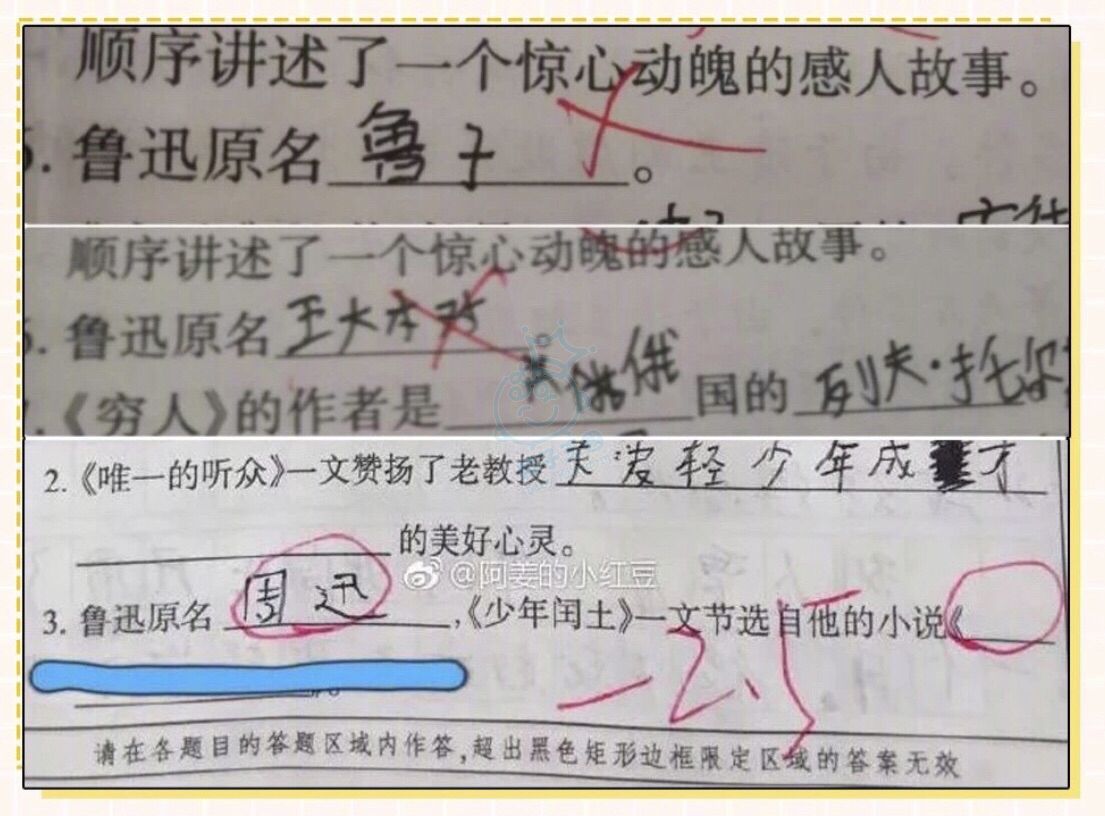 顺序讲述了一个惊心动魄的感人故事。
5. 鲁迅原名 鲁子 。
顺序讲述了一个惊心动魄的感人故事。
5. 鲁迅原名 王大本
.《穷人》的作者是 俄 国的 列夫·托尔
2.《唯一的听众》一文赞扬了老教授 关爱轻少年成才
的美好心灵。
@阿姜的小红豆
3. 鲁迅原名 周迅 ,《少年闰土》一文节选自他的小说《
-2.5
请在各题目的答题区域内作答,超出黑色矩形边框限定区域的答案无效